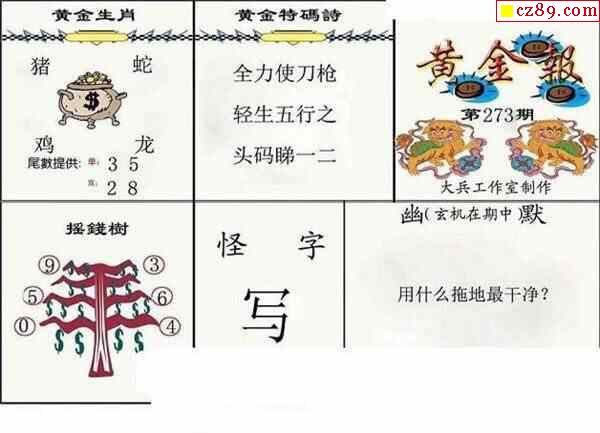 cz89.com
黄金生肖
猪 蛇
鸡 龙
尾數提供: 单: 3 5
双: 2 8
黄金特碼詩
全力使刀枪
轻生五行之
头码睇一二
黄金報
第273期
大兵工作室制作
摇錢樹
9 3
5 6
0 4
怪 字
写
幽(玄机在期中)默
用什么拖地最干净?